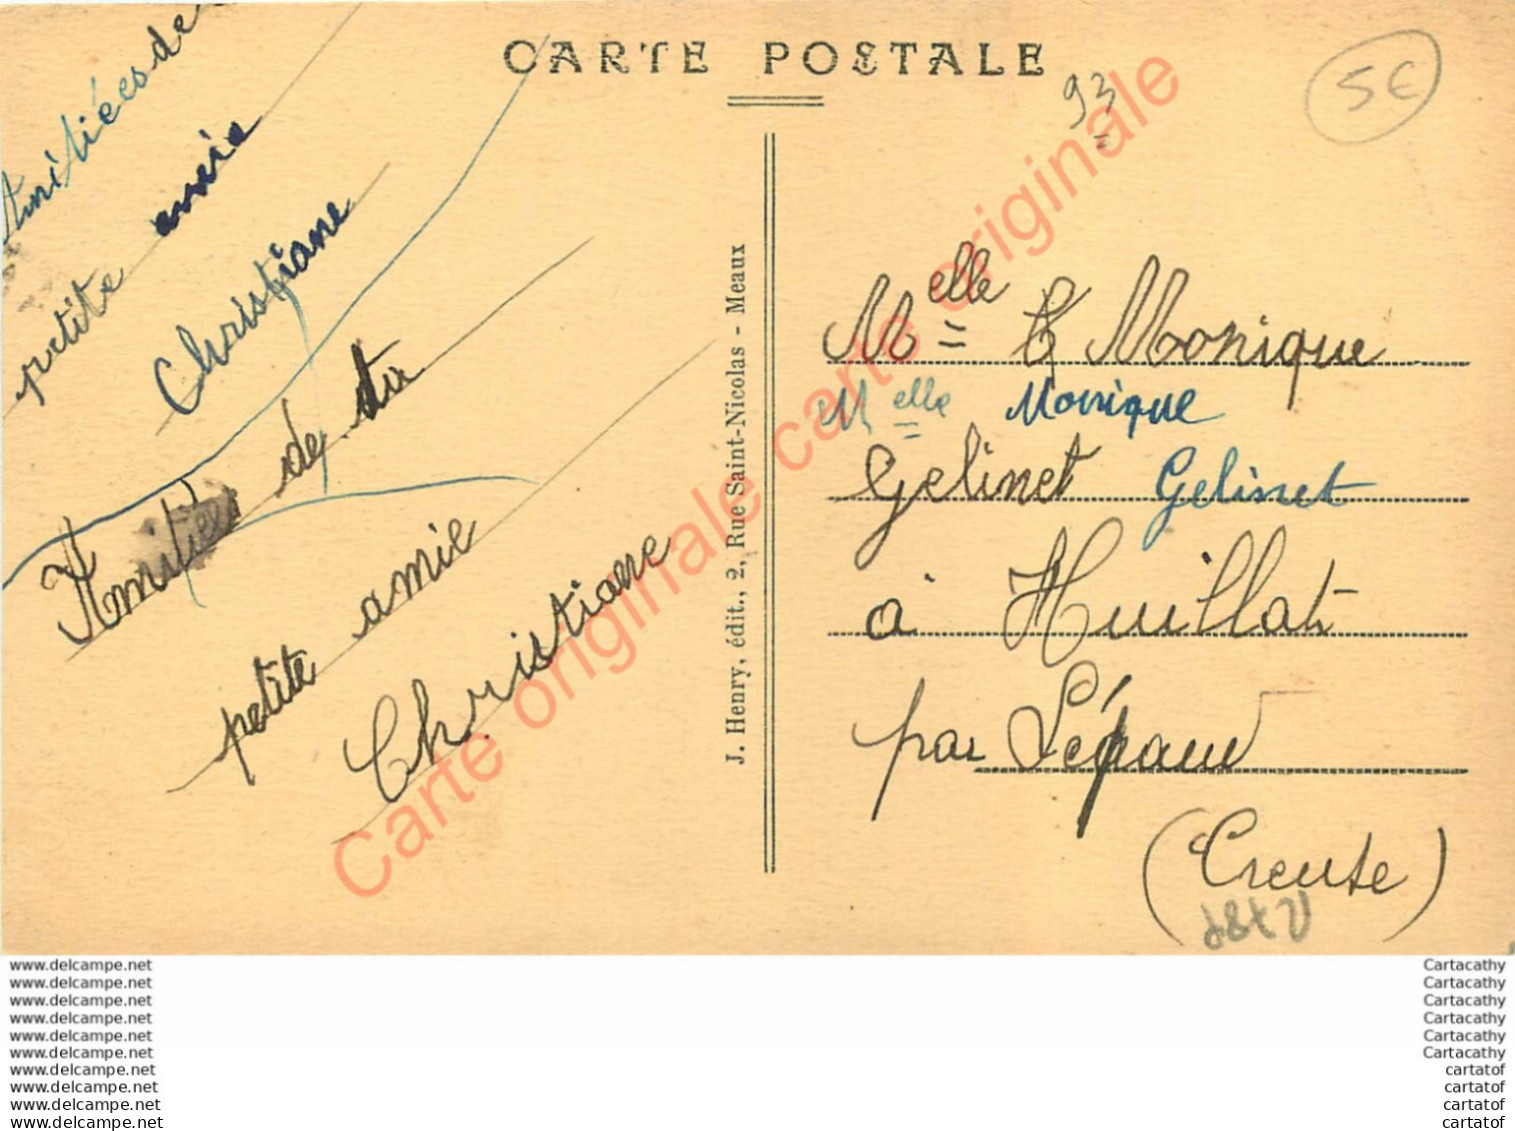 CARTE POSTALE
93
5€
Amitiées de
petite amie
Christiane
Amitiés de ta
petite amie
Christiane
J. Henry, édit., 2, Rue Saint-Nicolas - Meaux
Melle Monique
Melle Monique
Gelinet Gelinet
à Huillat
par Lépaud
(Creuse)
Carte originale carte originale
www.delcampe.net
www.delcampe.net
www.delcampe.net
www.delcampe.net
www.delcampe.net
www.delcampe.net
www.delcampe.net
www.delcampe.net
www.delcampe.net
www.delcampe.net
Cartacathy
Cartacathy
Cartacathy
Cartacathy
Cartacathy
Cartacathy
cartatof
cartatof
cartatof
cartatof